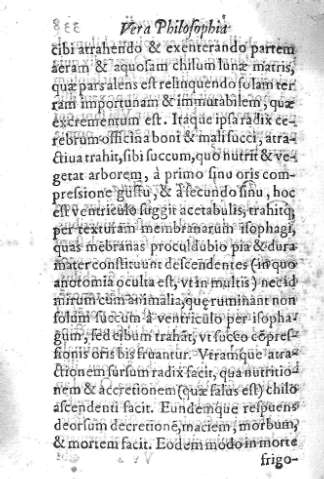 338 Vera Philosophia
cibi atrahendo & exenterando partem
aeram & aquosam chilum lunæ matris,
quæ pars alens est relinquendo solam ter
ram importunam & immutabilem, quæ
excrementum est. Itaque ipsa radix ce-
rebrum officina boni & mali succi, atra-
ctiua trahit, sibi succum, quo nutrit & ve-
getat arborem, à primo sinu oris com-
pressione gustu, & à secundo sinu, hoc
est ventriculo suggit acetabulis, trahitq;
per texturam membranarum isophagi,
quas mẽbranas proculdubio pia & dura
mater constituunt descendẽtes (in quo
anotomia oculta est, vt in multis) nec id
mirum cum animalia, quę ruminant non
solum succum à ventriculo per isopha-
gum, sed cibum trahãt, vt succo cõpres-
sionis oris bis fruantur. Vtramque atra-
ctionem sursum radix facit, qua nutritio-
nem & accretionem (quæ salus est) chilo
ascendenti facit. Eundemque respuens
deorsum decretionẽ, maciem, morbum,
& mortem facit. Eodem modo in morte
frigo-